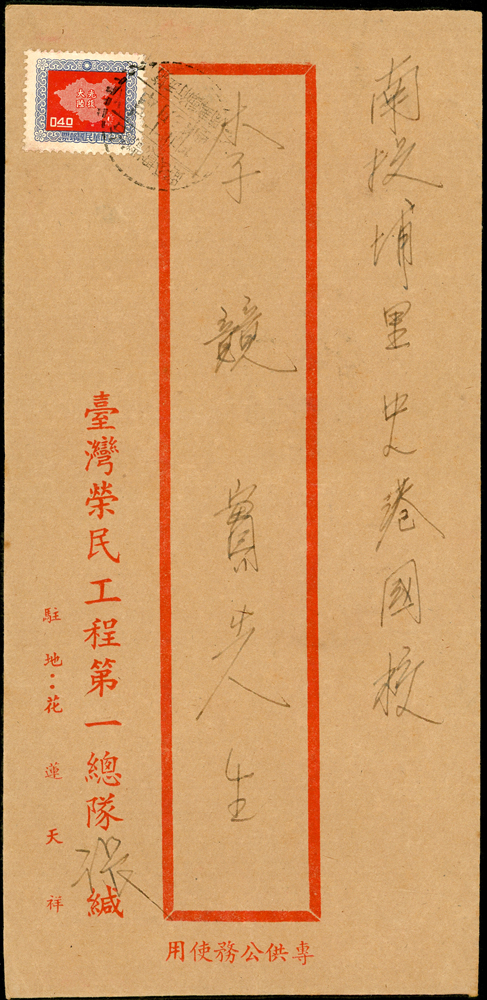 南投埔里史港國校
李競賓先生
臺灣榮民工程第一總隊張緘
駐地：花蓮天祥
專供公務使用
光復大陸
040
中華民國郵票